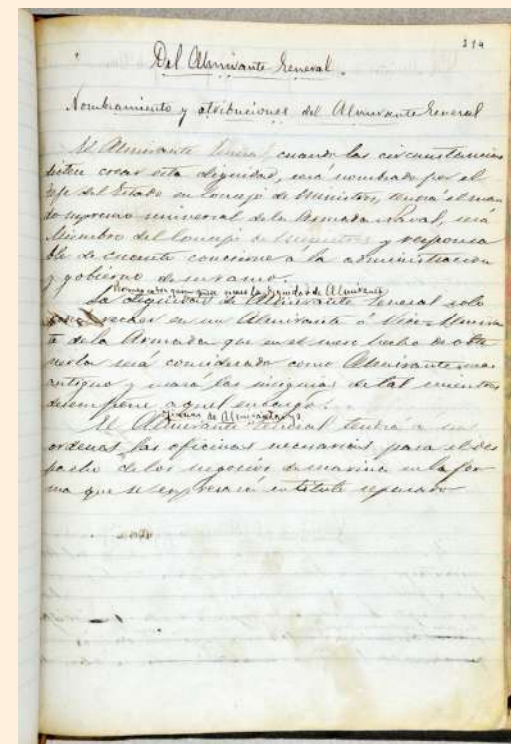 214
Del Almirante General.
Nombramiento y atribuciones del Almirante General
El Almirante General, cuando las circunstancias
dicten crear esta dignidad, será nombrado por el
Jefe del Estado en Consejo de Ministros, tendrá el man
do supremo universal de la Armada Naval, será
Miembro del Consejo de Ministros y responsa
ble de cuanto concierne a la administracion
y gobierno de su ramo.
la dignidad de Almirante
La dignidad de Almirante General solo
recaer en un Almirante ó Vice-Almiran
te de la Armada que en el mero hecho de obte
nerla será considerado como Almirante mas
antiguo y usará las insignias de tal mientras
desempeñe aquel encargo.
oficinas de Almirantazgo
El Almirante General tendrá a sus
ordenes las oficinas necesarias para el des
pacho de los negocios de marina en la for
ma que se expresará en titulo separado